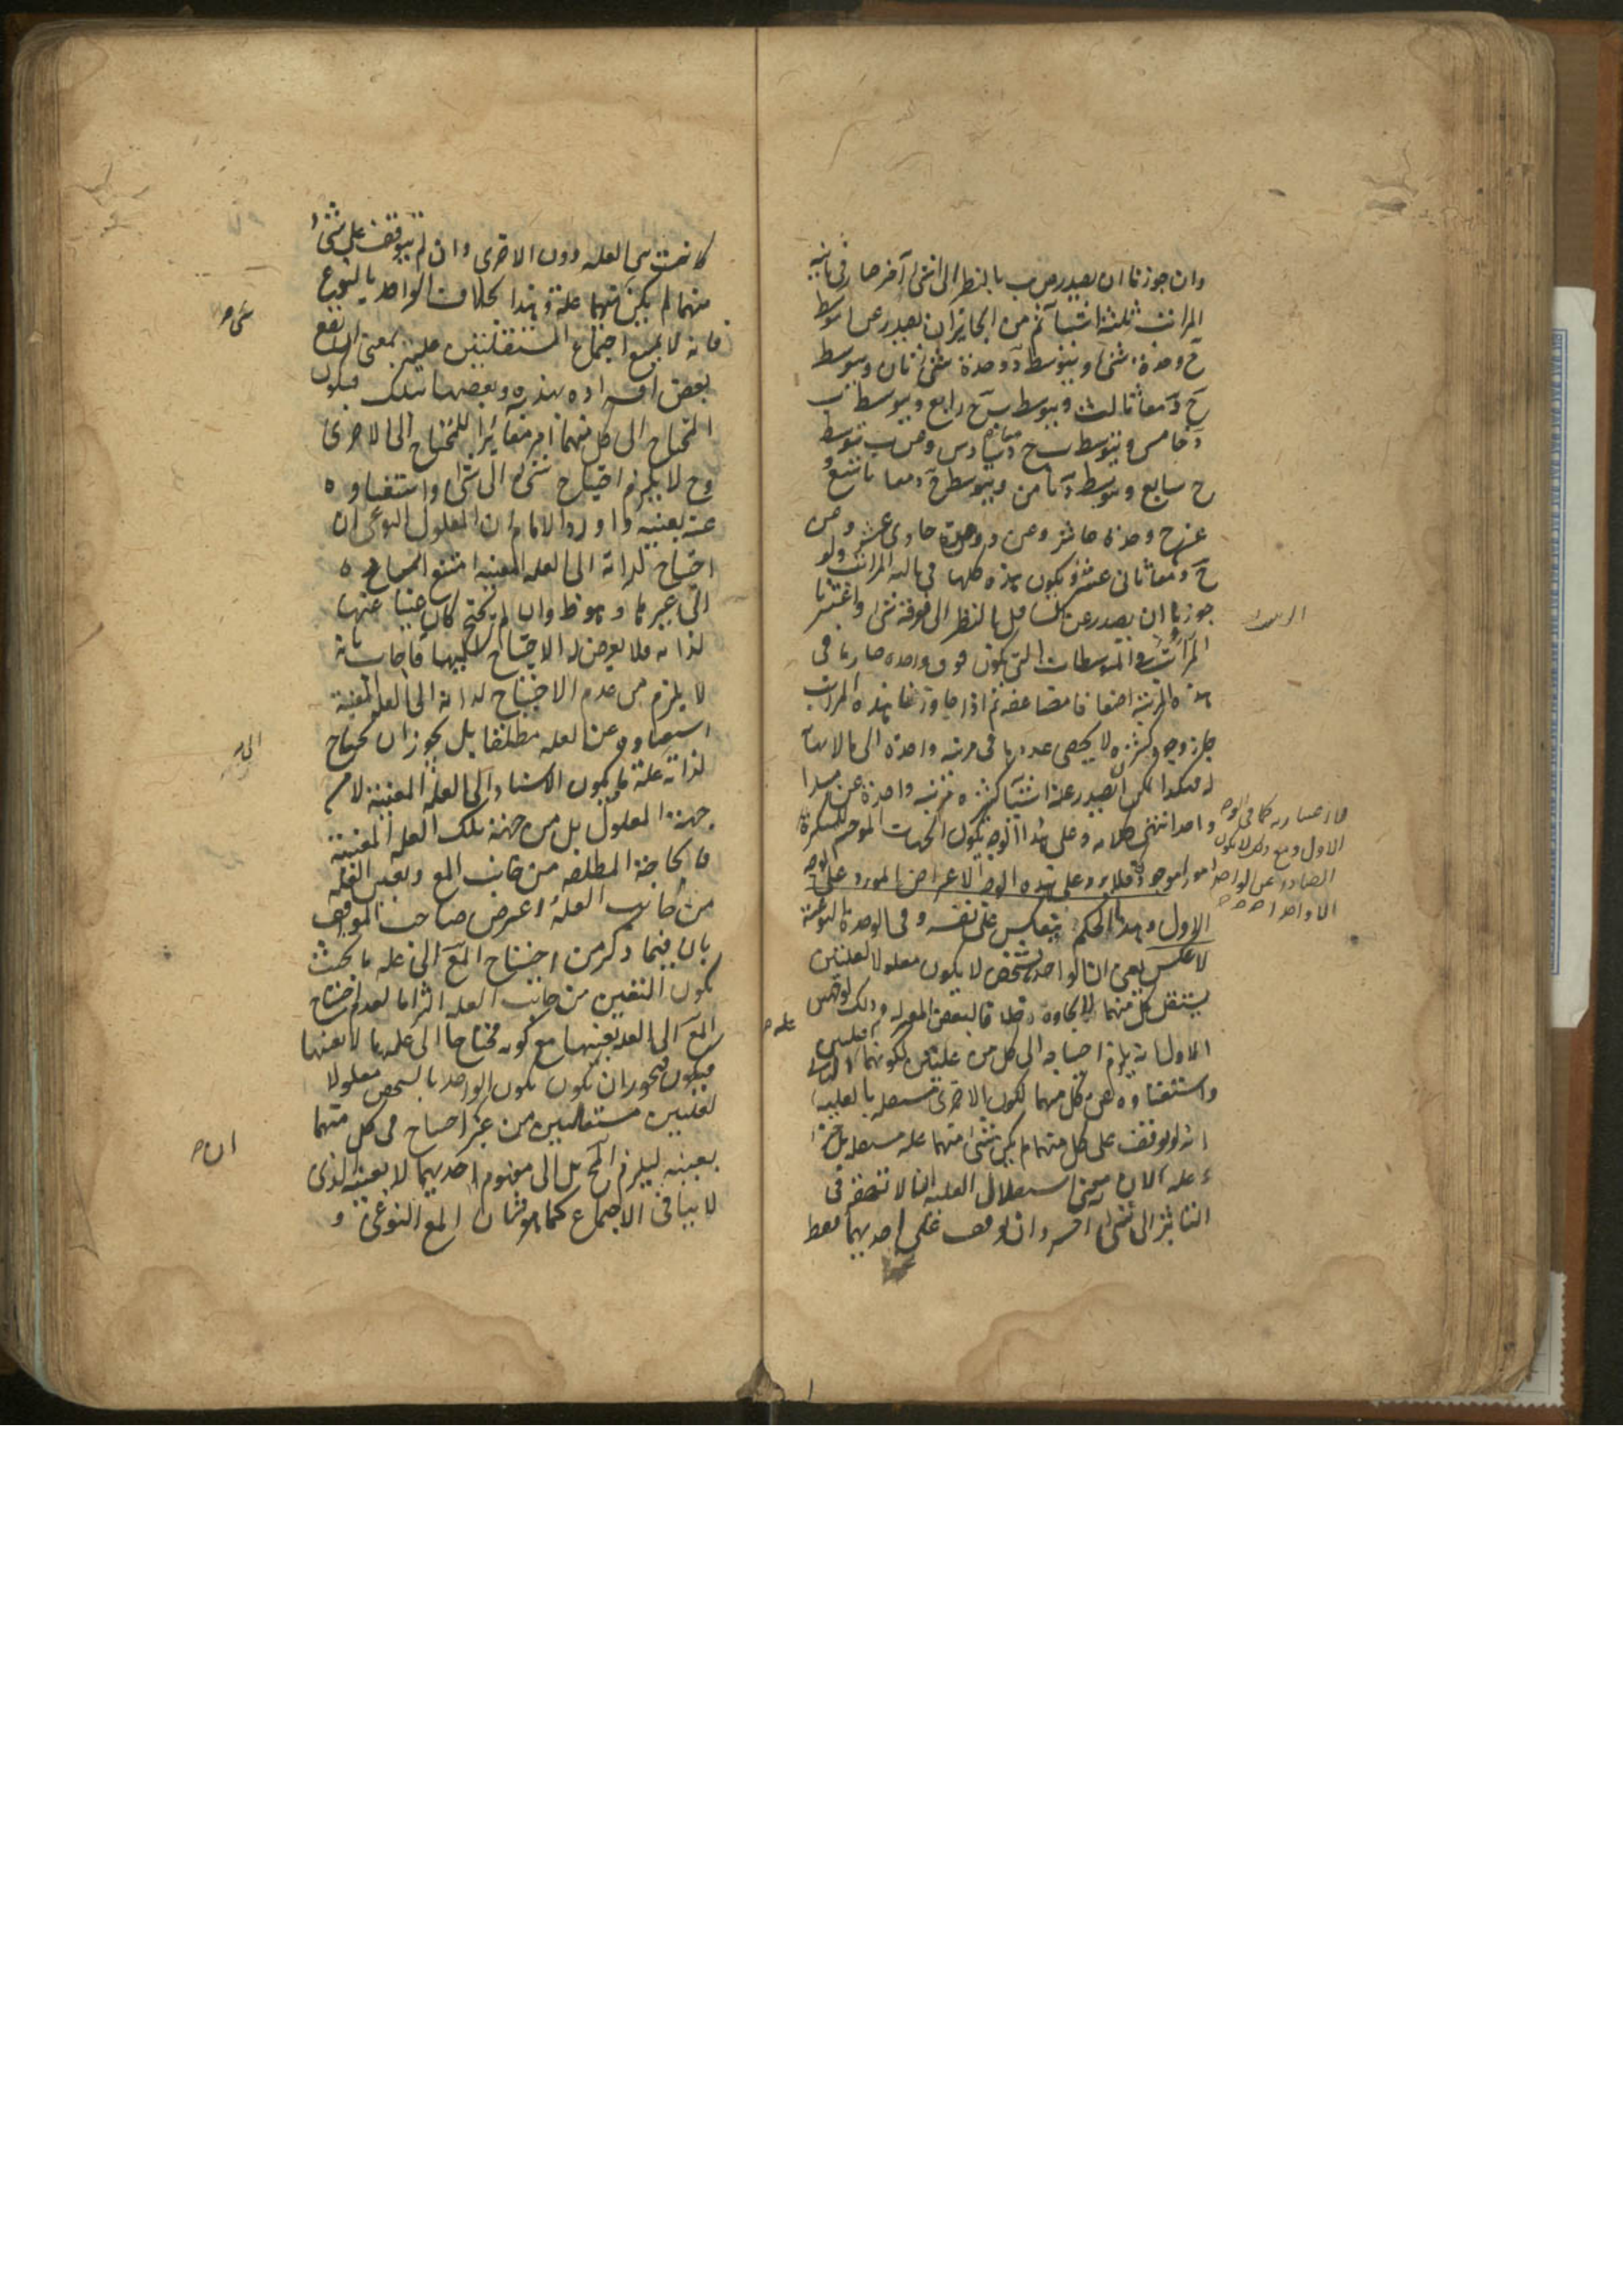 وان جوزنا ان يصدر من ب بالنظر الى ا شئ آخر صار فى ثانية
المراتب ثلثة اشيآء ثم من الجايز ان يصدر عن ا بتوسط
ج وحده شئ وبتوسط د وحده شئ ثان وبتوسط
ج د معا ثالث وبتوسط ب ج رابع وبتوسط ب
د خامس وبتوسط ب ج د سادس ومن ب بتوسط
ج سابع وبتوسط د ثامن وبتوسط ج د معا تاسع و
عن ج وحده عاشر ومن د وحده حادى عشر ومن
ج د معا ثانى عشر ويكون هذه كلها فى ثالثة المراتب ولو
جوزنا ان يصدر عن السافل بالنظر الى ما فوقه شئ واعتبرنا
الترتيب فى المتوسطات التى تكون فوق واحدة صار ما فى
هذه المرتبة اضعافا مضاعفة ثم اذا جاوزنا هذه المراتب
جاز وجود كثرة لا يحصى عددها فى مرتبة واحدة الى ما لا نهاية
له فهكذا يمكن ان يصدر عنه اشياء كثيرة فى مرتبة واحدة عن مبدا
واحد انتهى كلامه وعلى هذا الوجه يكون الجهات الموجبة للكثرة
امورا موجودة فلا يرد على هذه الوجه الاعتراض المورد على الوجه
الاول وهذا الحكم ينعكس على نفسه وفى الوحدة النوعية
لا عكس يعنى ان الواحد بالشخص لا يكون معلولا لعلتين
يستقل كل منهما بايجاده خلافا لبعض المعتزلة وذلك لوجهين
الاول انه يلزم احتياجه الى كل من علتين لكونهما علتين
واستغناؤه عن كل منهما لكون الاخرى مستقلة بالعلية
انه لو توقف على كل منهما لم يكن شئ منهما علة مستقلة بل جزء
علة لان معنى استقلال العلة انها لا تفتقر فى
التأثير الى شئ آخر وان توقف على احديهما فقط
كانت هى العلة دون الاخرى وان لم يتوقف على شئ
منهما لم يكن شئ منهما علة وهذا بخلاف الواحد بالنوع
فانه لا يمتنع اجتماع المستقلتين عليه بمعنى ان يقع
بعض افراده بهذه وبعضها بتلك فيكون
المحتاج الى كل منهما امر مغايرا للمحتاج الى الاخرى
وح لا يلزم احتياج شئ الى شئ واستغناؤه
عنه بعينه واورد الامام ان المعلول النوعى ان
احتاج لذاته الى العلة المعينة امتنع استناده
الى غيرها وهو ظ وان لم يحتج كان غنيا عنها
لذاته فلا يعرض له الاحتياج اليها فاجاب بانه
لا يلزم من عدم الاحتياج لذاته الى العلة المعينة
استغناؤه عن العلة مطلقا بل يجوز ان يحتاج
لذاته الى علة ما ويكون الاستناد الى العلة المعينة لا من
جهة المعلول بل من جهة تلك العلة المعينة
فالحاجة المطلقة من جانب المع وتعين العلة
من جانب العلة واعترض صاحب المواقف
بان فيما ذكر من احتياج المع الى علة ما بحيث
يكون التعين من جانب العلة التزاما لعدم احتياج
المع الى العلة بعينها مع كونه محتاجا الى علة ما لا بعينها
فيجوز ان يكون الواحد بالشخص معلولا
لعلتين مستقلتين من غير احتياج فى كل منهما
بعينه ليلزم المح بل الى مفهوم احديهما لا بعينه الذى
لا ينافى الاجتماع كما هو شأن المع النوعى و
علة ح
الاول ومع ذلك لا يكون
الصادر عن الواحد
الا واحدا ح ح ح
شئ ح
الى ح
ان ح